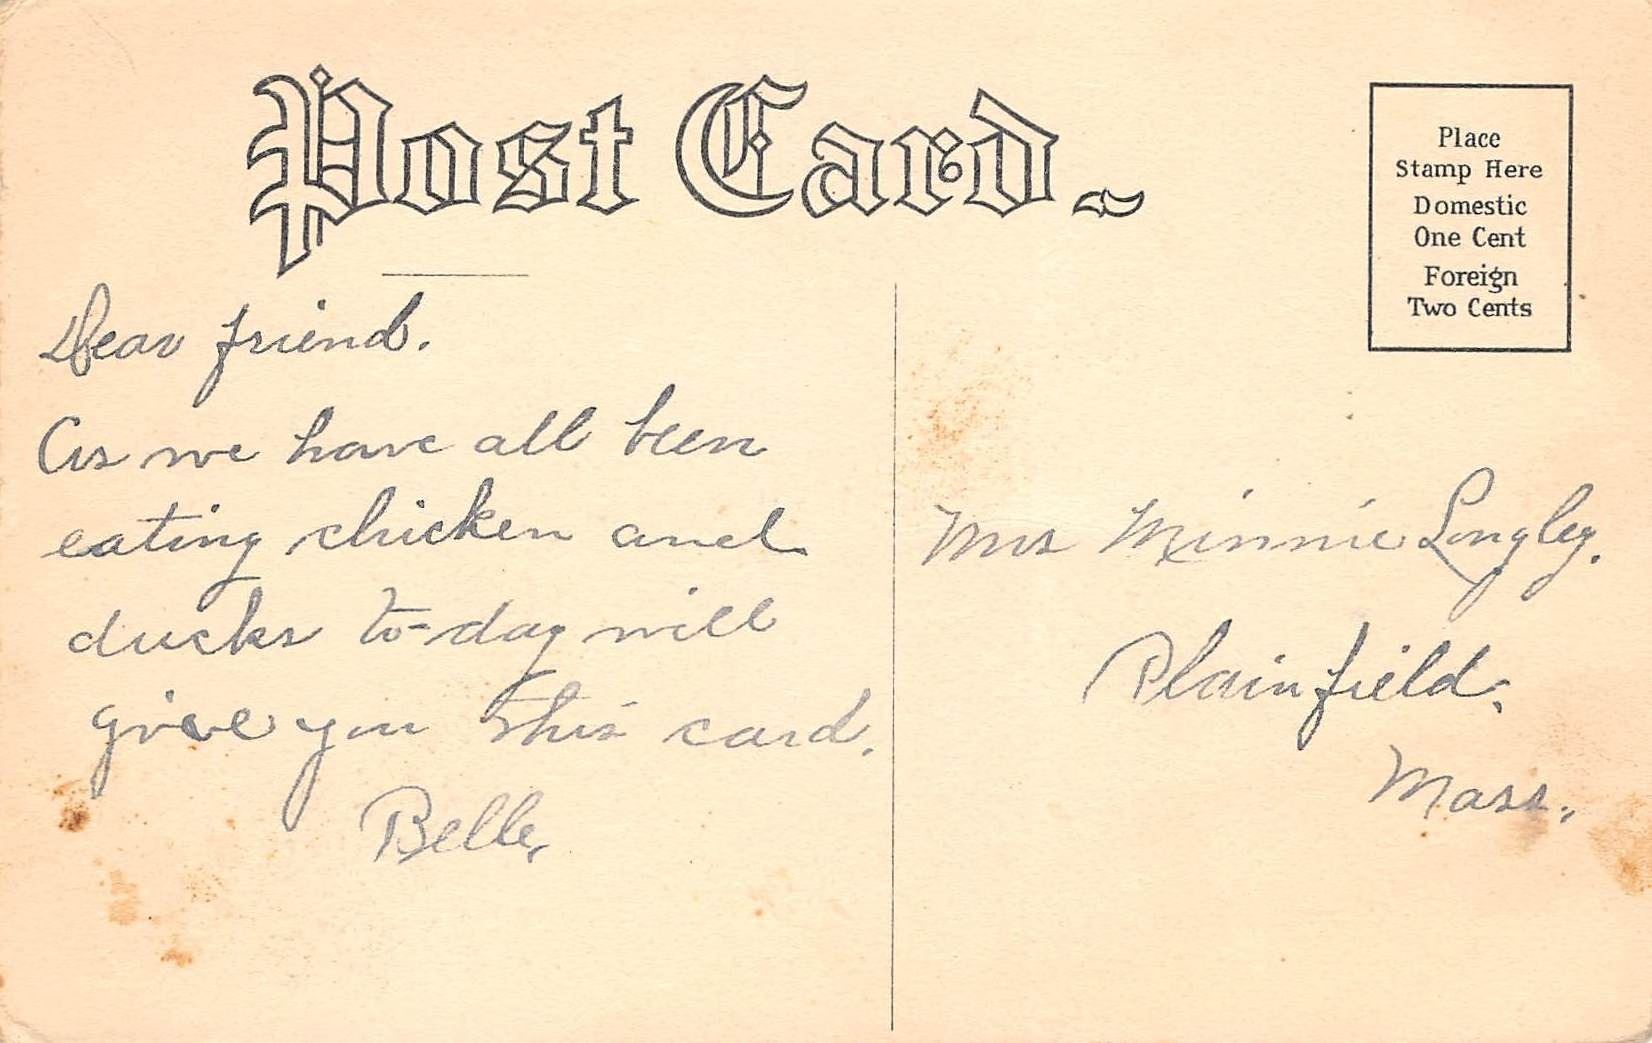 Post Card
Place
Stamp Here
Domestic
One Cent
Foreign
Two Cents
Dear friend.
As we have all been
eating chicken and
ducks to-day will
give you this card.
Belle,
Mrs Minnie Longley.
Plainfield,
Mass.